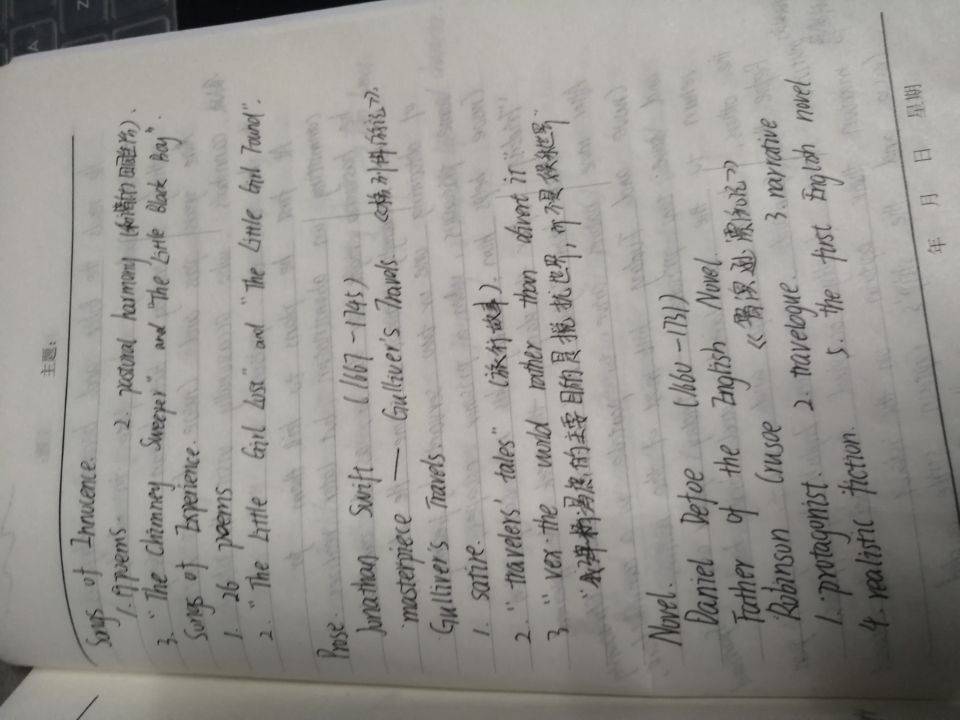 主题:
Songs of Innocence.
1. 19 poems. 2. pastoral harmony (和谐的田园生活)
3. "The Chimney Sweeper" and "The Little Black Boy".
Songs of Experience.
1. 26 poems
2. "The Little Girl Lost" and "The Little Girl Found".
Prose.
Jonathan Swift (1667-1745)
masterpiece — Gulliver's Travels 《格列佛游记》.
Gulliver's Travels.
1. satire.
2. "travelers' tales" (旅行故事).
3. "vex the world rather than divert it"
的主要目的是搅扰世界,而不是娱乐世界"
Novel.
Daniel Defoe (1660-1731)
Father of the English Novel.
Robinson Crusoe 《鲁滨逊漂流记》
1. protagonist. 2. travelogue. 3. narrative
4. realistic fiction. 5. the first English novel.
年 月 日 星期